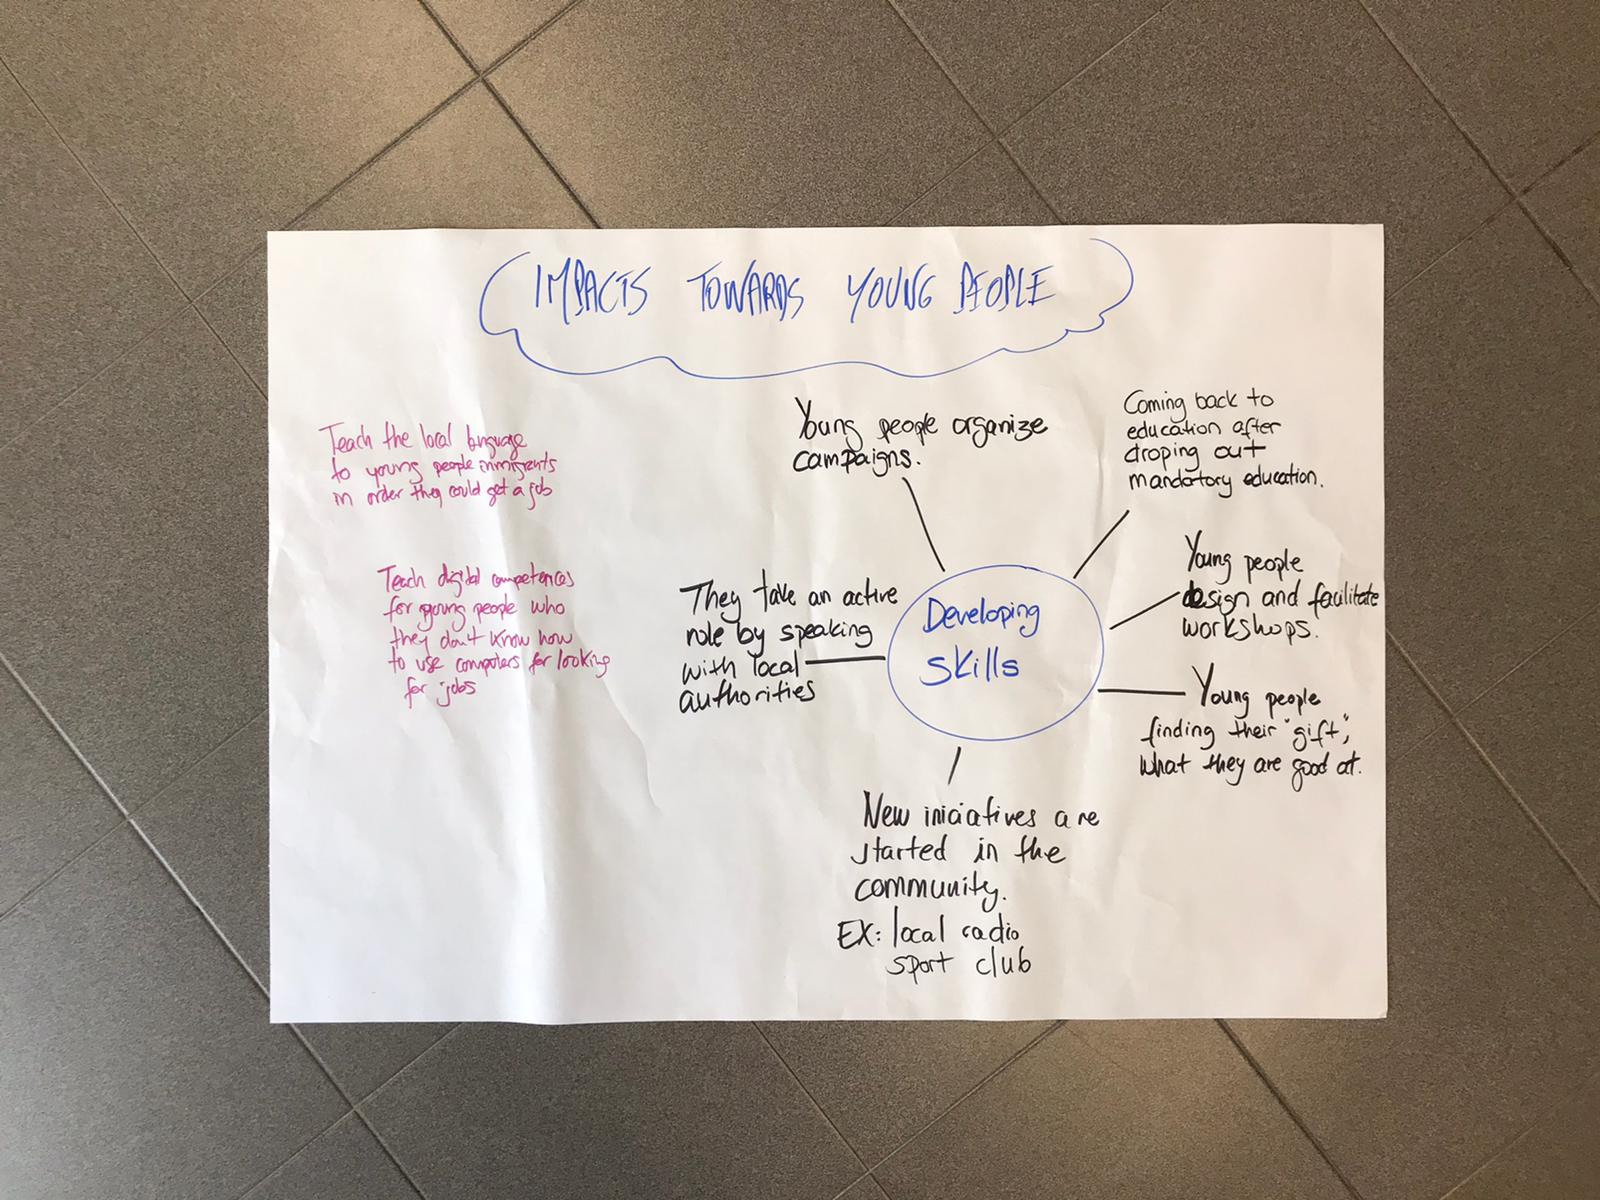 IMPACTS TOWARDS YOUNG PEOPLE
Teach the local language
to young people inmigrants
in order they could get a job
Teach digital competences
for young people who
they don't know how
to use computers for looking
for jobs
Young people organize
campaigns.
Coming back to
education after
droping out
mandatory education.
They take an active
role by speaking
with local
authorities
Developing
skills
Young people
design and facilitate
workshops.
Young people
finding their "gift",
what they are good at.
New iniciatives are
started in the
community.
EX: local radio
sport club